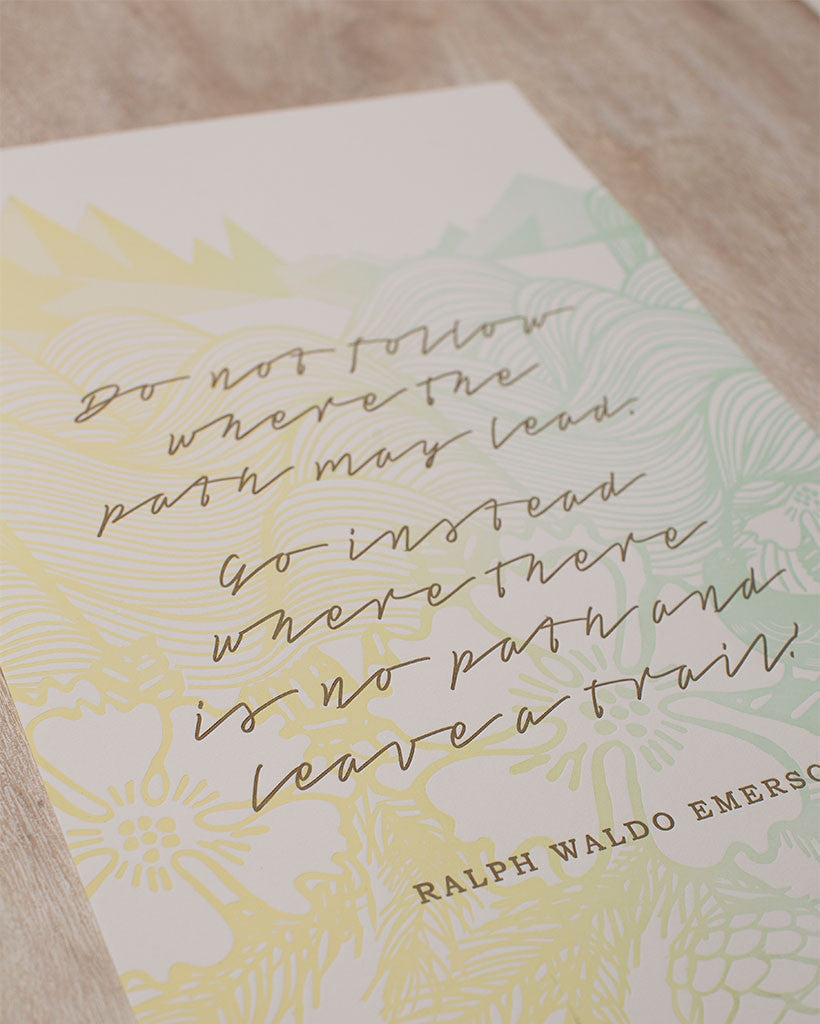 Do not follow
where the
path may lead.
Go instead
where there
is no path and
leave a trail!
RALPH WALDO EMERSO